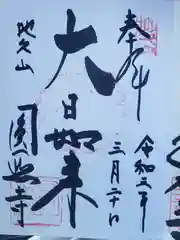 奉拝
令和 年
三月二十日
大日如来
地久山
圓興寺